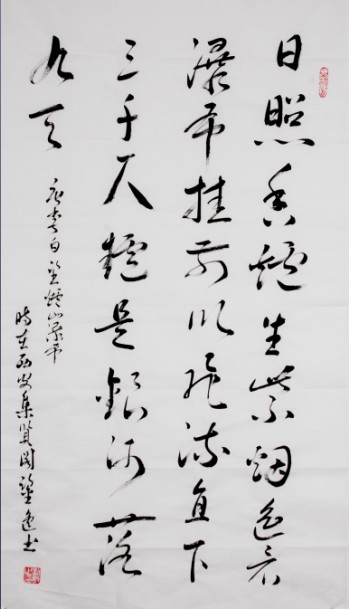 日照香爐生紫烟遥看
瀑布挂前川飛流直下
三千尺疑是銀河落
九天
唐李白望廬山瀑布
時在西安集賢閣逸書